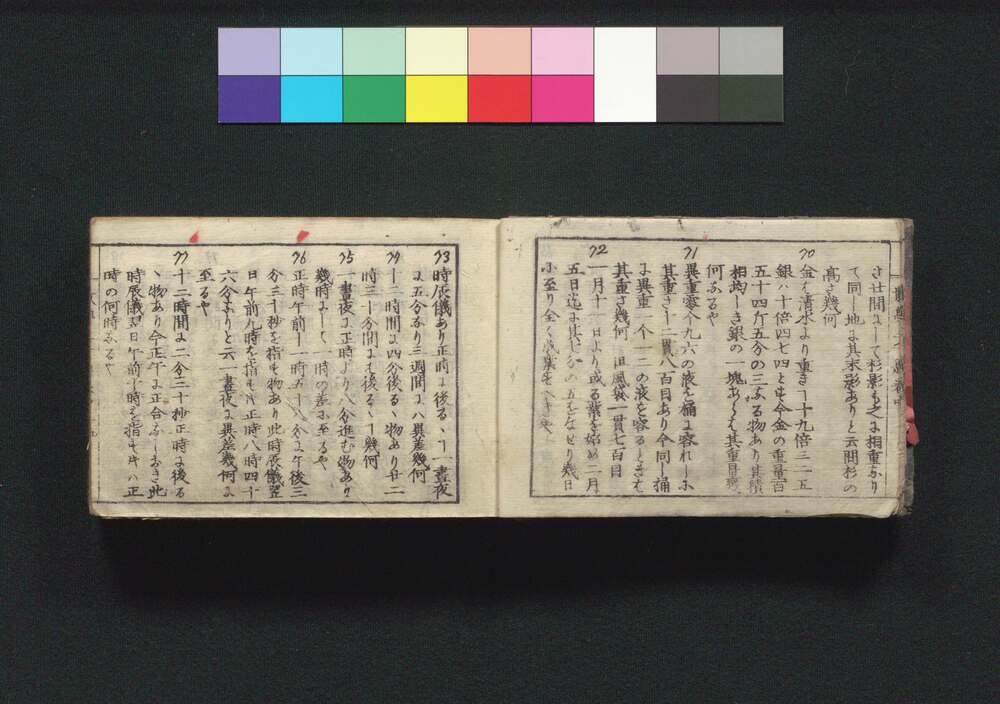 さ廿間にして杉影も之に相重なり
て同し地に其末影ありと云問杉の
高さ幾何
70
金は清水より重き十九倍三二五
銀は十倍四七四とす今金の重量百
五十四斤五分の三なる物あり其積
相均しき銀の一塊あらば其重量幾
何なるや
71
異重零个九六の液を桶に容れしに
其重さ十二貫八百目あり今同し桶
に異重一个一二の液を容るときは
其重さ幾何 旧風袋一貫七百目
72
一月十一日より或る業を始め二月
五日迄に其 の をなせり幾日
に至り全く
73
時辰儀あり正時に後るゝ一晝夜
に五分なり三週間には異差幾何
74
十二時間に四分後るゝ物あり廿二
時三十分間には後るゝ幾何
75
一晝夜に正時より八分進む物あり
幾時にして一時の差に至るや
76
正時午前十一時五十八分に午後三
分三十秒を指す物あり此時辰儀翌
日午前九時を指すは正時八時四十
六分なりと云一晝夜に異差幾何に
至るや
77
十二時間に二分三十秒正時に後る
ゝ物あり今正午に正合なしおき此
時辰儀翌日午前十時を指すときは正
時の何時なるや